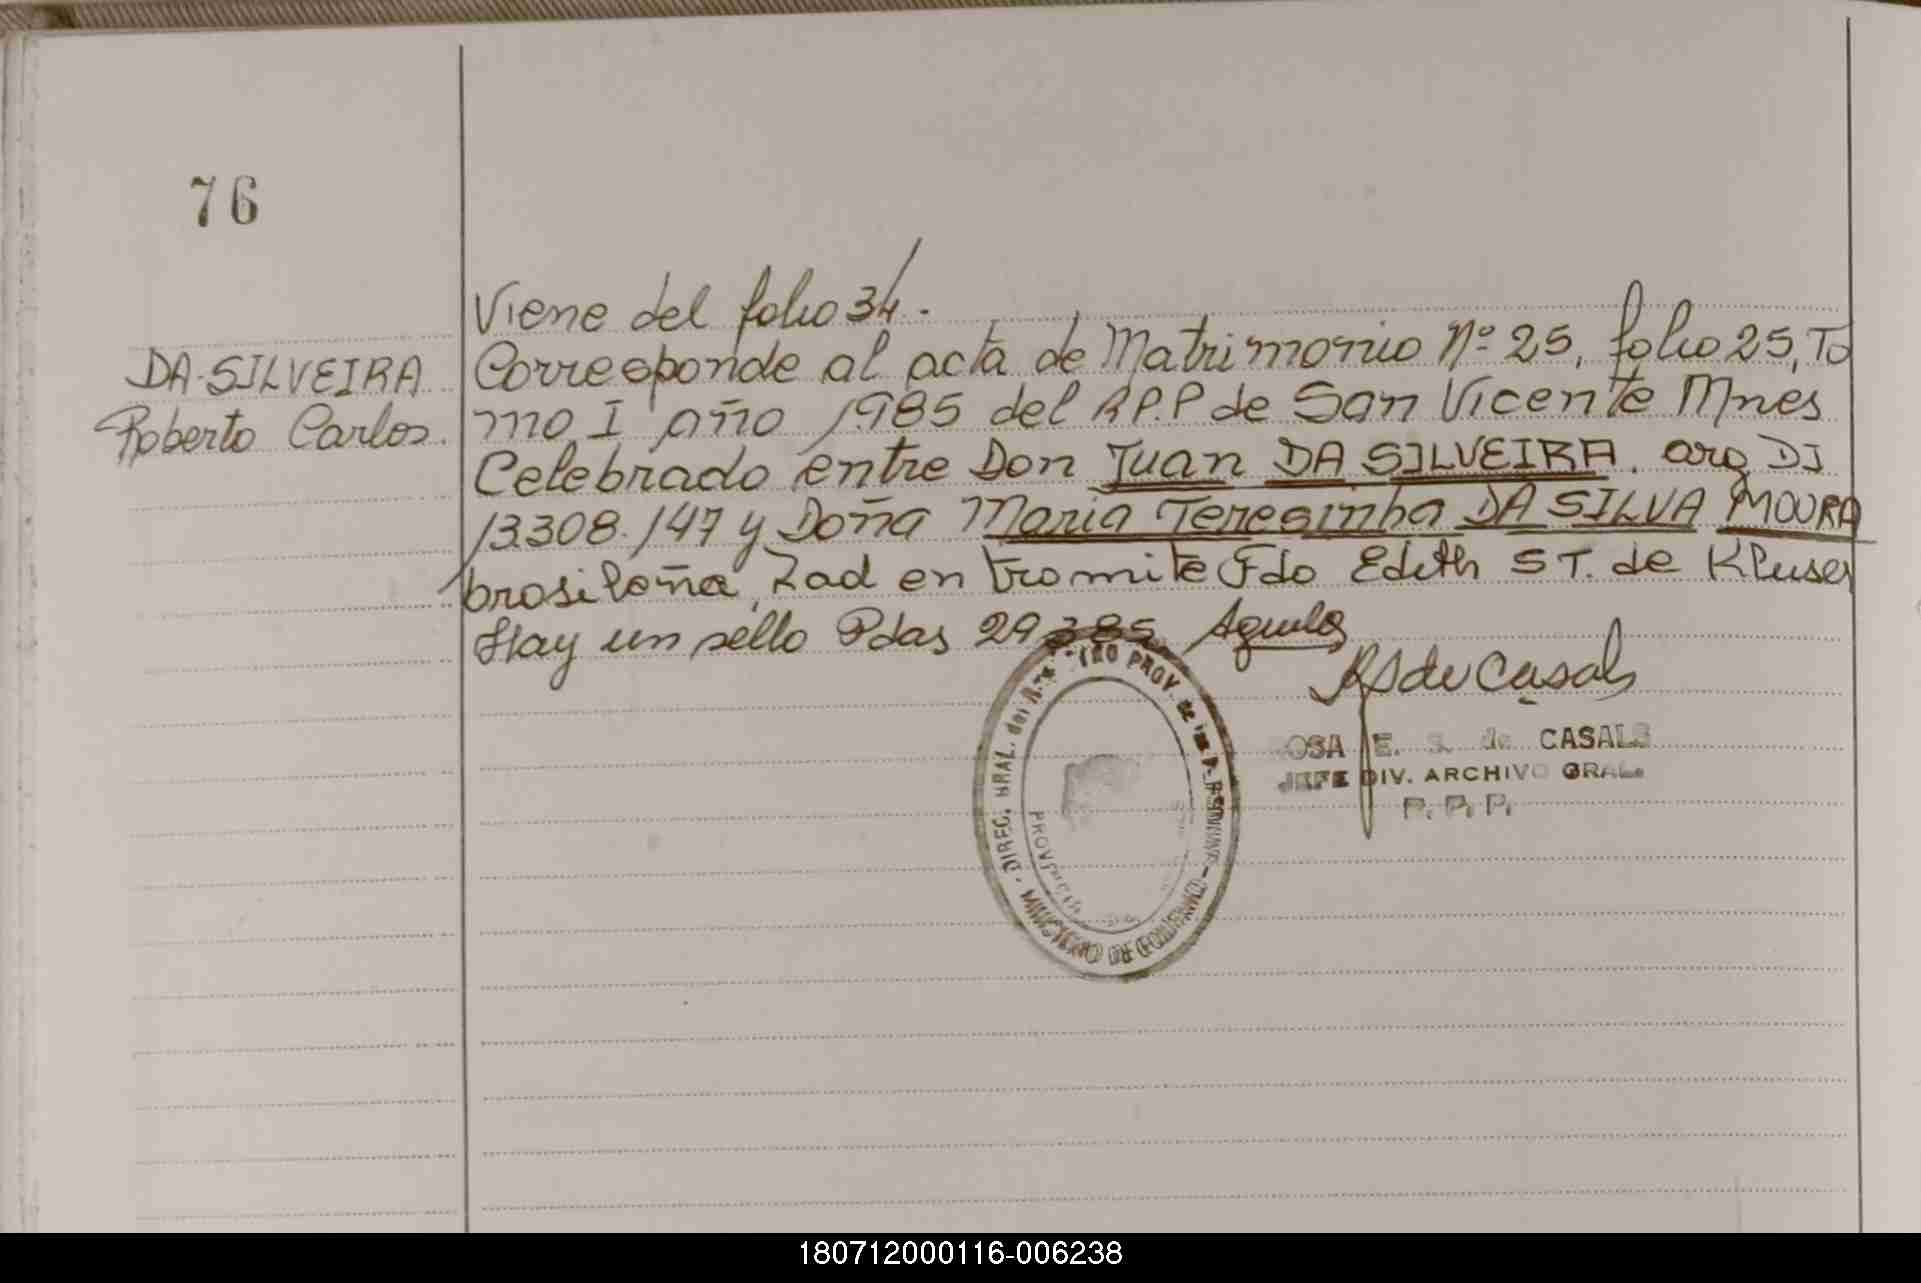 76
Viene del folio 34.
DA SILVEIRA
Roberto Carlos.
Corresponde al acta de Matrimonio Nº 25, folio 25, To
mo I año 1985 del R.P.P de San Vicente Mnes
Celebrado entre Don Juan DA SILVEIRA. arg DI
13.308.147 y Doña Maria Teresinha DA SILVA MOURA
brasileña, Rad en tramite Fdo Edith S T. de Kluser
Hay un sello Pdas 29 385 Aguilar
RS de Casals
ROSA E. S. de CASALS
JEFE DIV. ARCHIVO GRAL.
R. P. P.
DIREC. GRAL. del REGISTRO PROV. de las PERSONAS - MINISTERIO DE GOBIERNO -
PROVINCIA DE
180712000116-006238